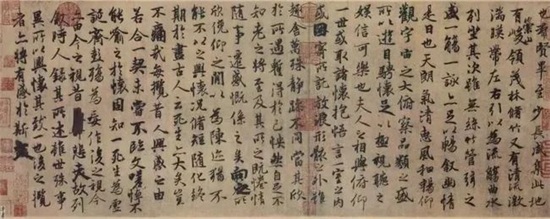 也群賢畢至少長咸集此地
有崇山峻領茂林脩竹又有清流激
湍暎帶左右引以為流觴曲水
列坐其次雖無絲竹管弦之
盛一觴一詠亦足以暢敘幽情
是日也天朗氣清惠風和暢仰
觀宇宙之大俯察品類之盛
所以遊目騁懷足以極視聽之
娛信可樂也夫人之相與俯仰
一世或取諸懷抱悟言一室之內
或因寄所託放浪形骸之外雖
趣舍萬殊靜躁不同當其欣
於所遇蹔得於己怏然自足不
知老之將至及其所之既惓情
隨事遷感慨係之矣向之所
欣俛仰之閒以為陳迹猶不
能不以之興懷況脩短隨化終
期於盡古人云死生亦大矣豈
不痛哉每攬昔人興感之由
若合一契未嘗不臨文嗟悼不
能喻之於懷固知一死生為虛
誕齊彭殤為妄作後之視今
亦由今之視昔悲夫故列
敘時人錄其所述雖世殊事
異所以興懷其致一也後之攬
者亦將有感於斯文